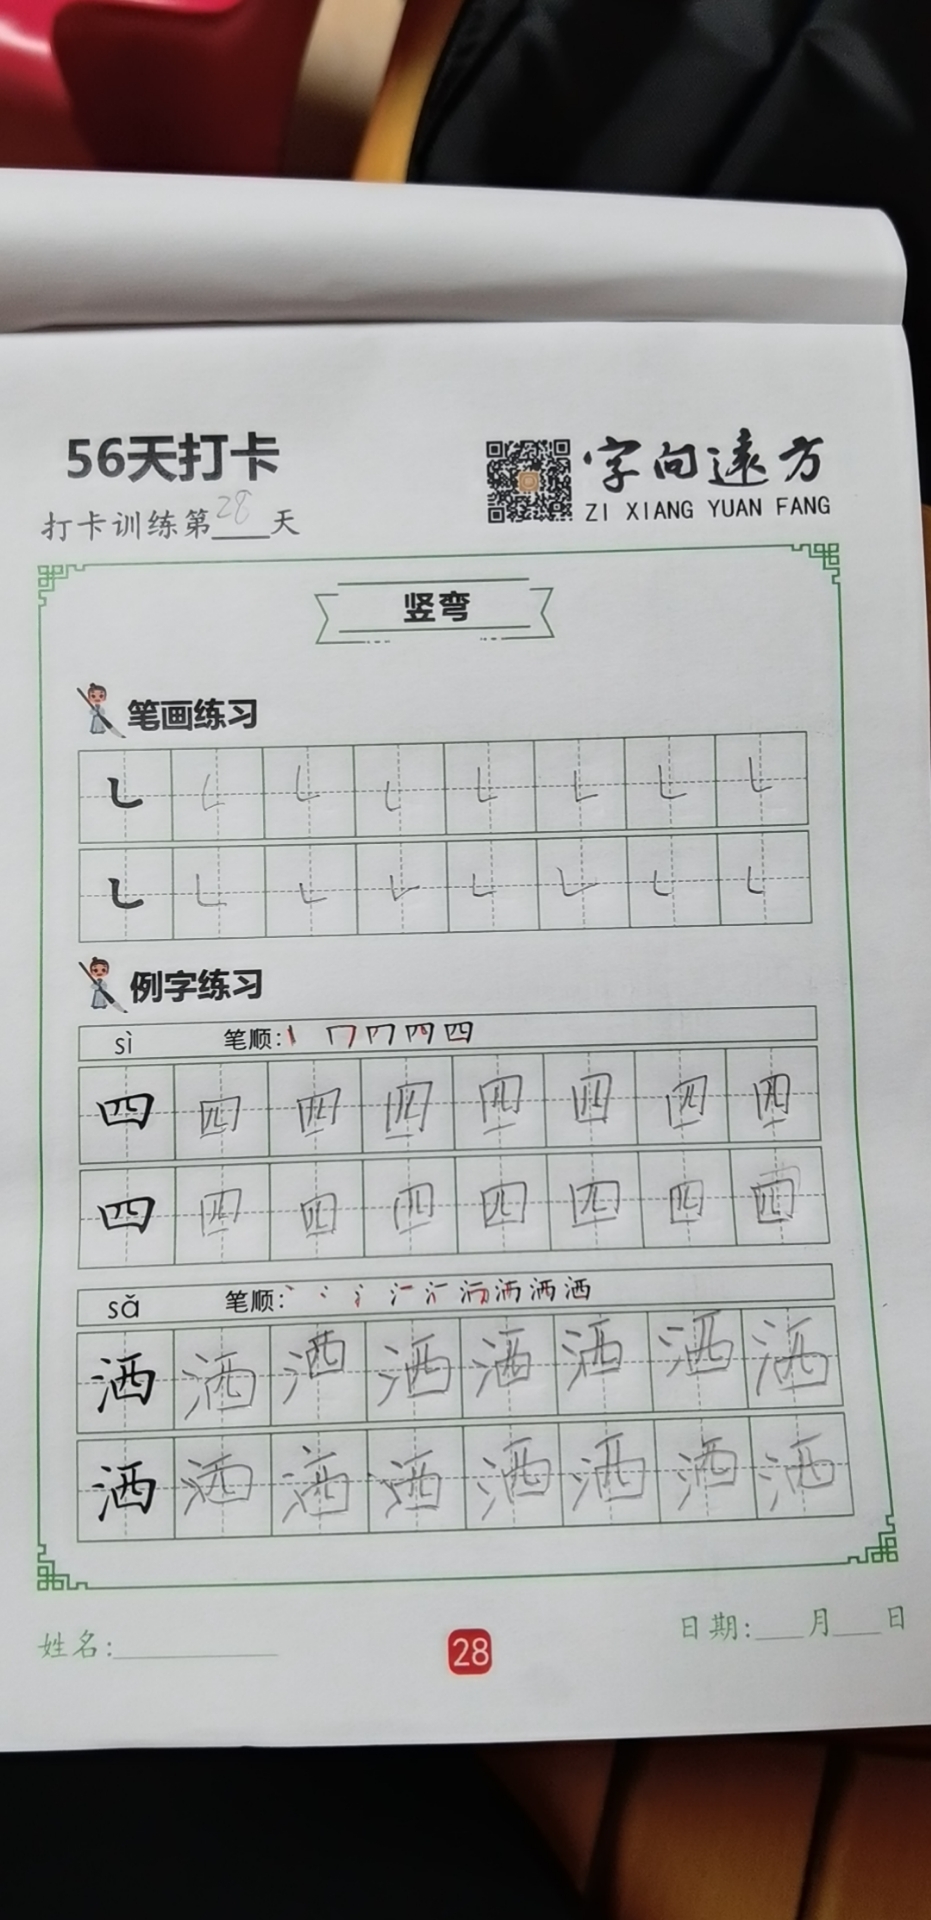 56天打卡
字向远方
ZI XIANG YUAN FANG
打卡训练第28天
竖弯
笔画练习
㇄ ㇄ ㇄ ㇄ ㇄ ㇄ ㇄ ㇄
㇄ ㇄ ㇄ ㇄ ㇄ ㇄ ㇄ ㇄
例字练习
sì 笔顺:
四 四 四 四 四 四 四 四
四 四 四 四 四 四 四 四
sǎ 笔顺:
洒 洒 洒 洒 洒 洒 洒 洒
洒 洒 洒 洒 洒 洒 洒 洒
姓名:
28
日期: 月 日